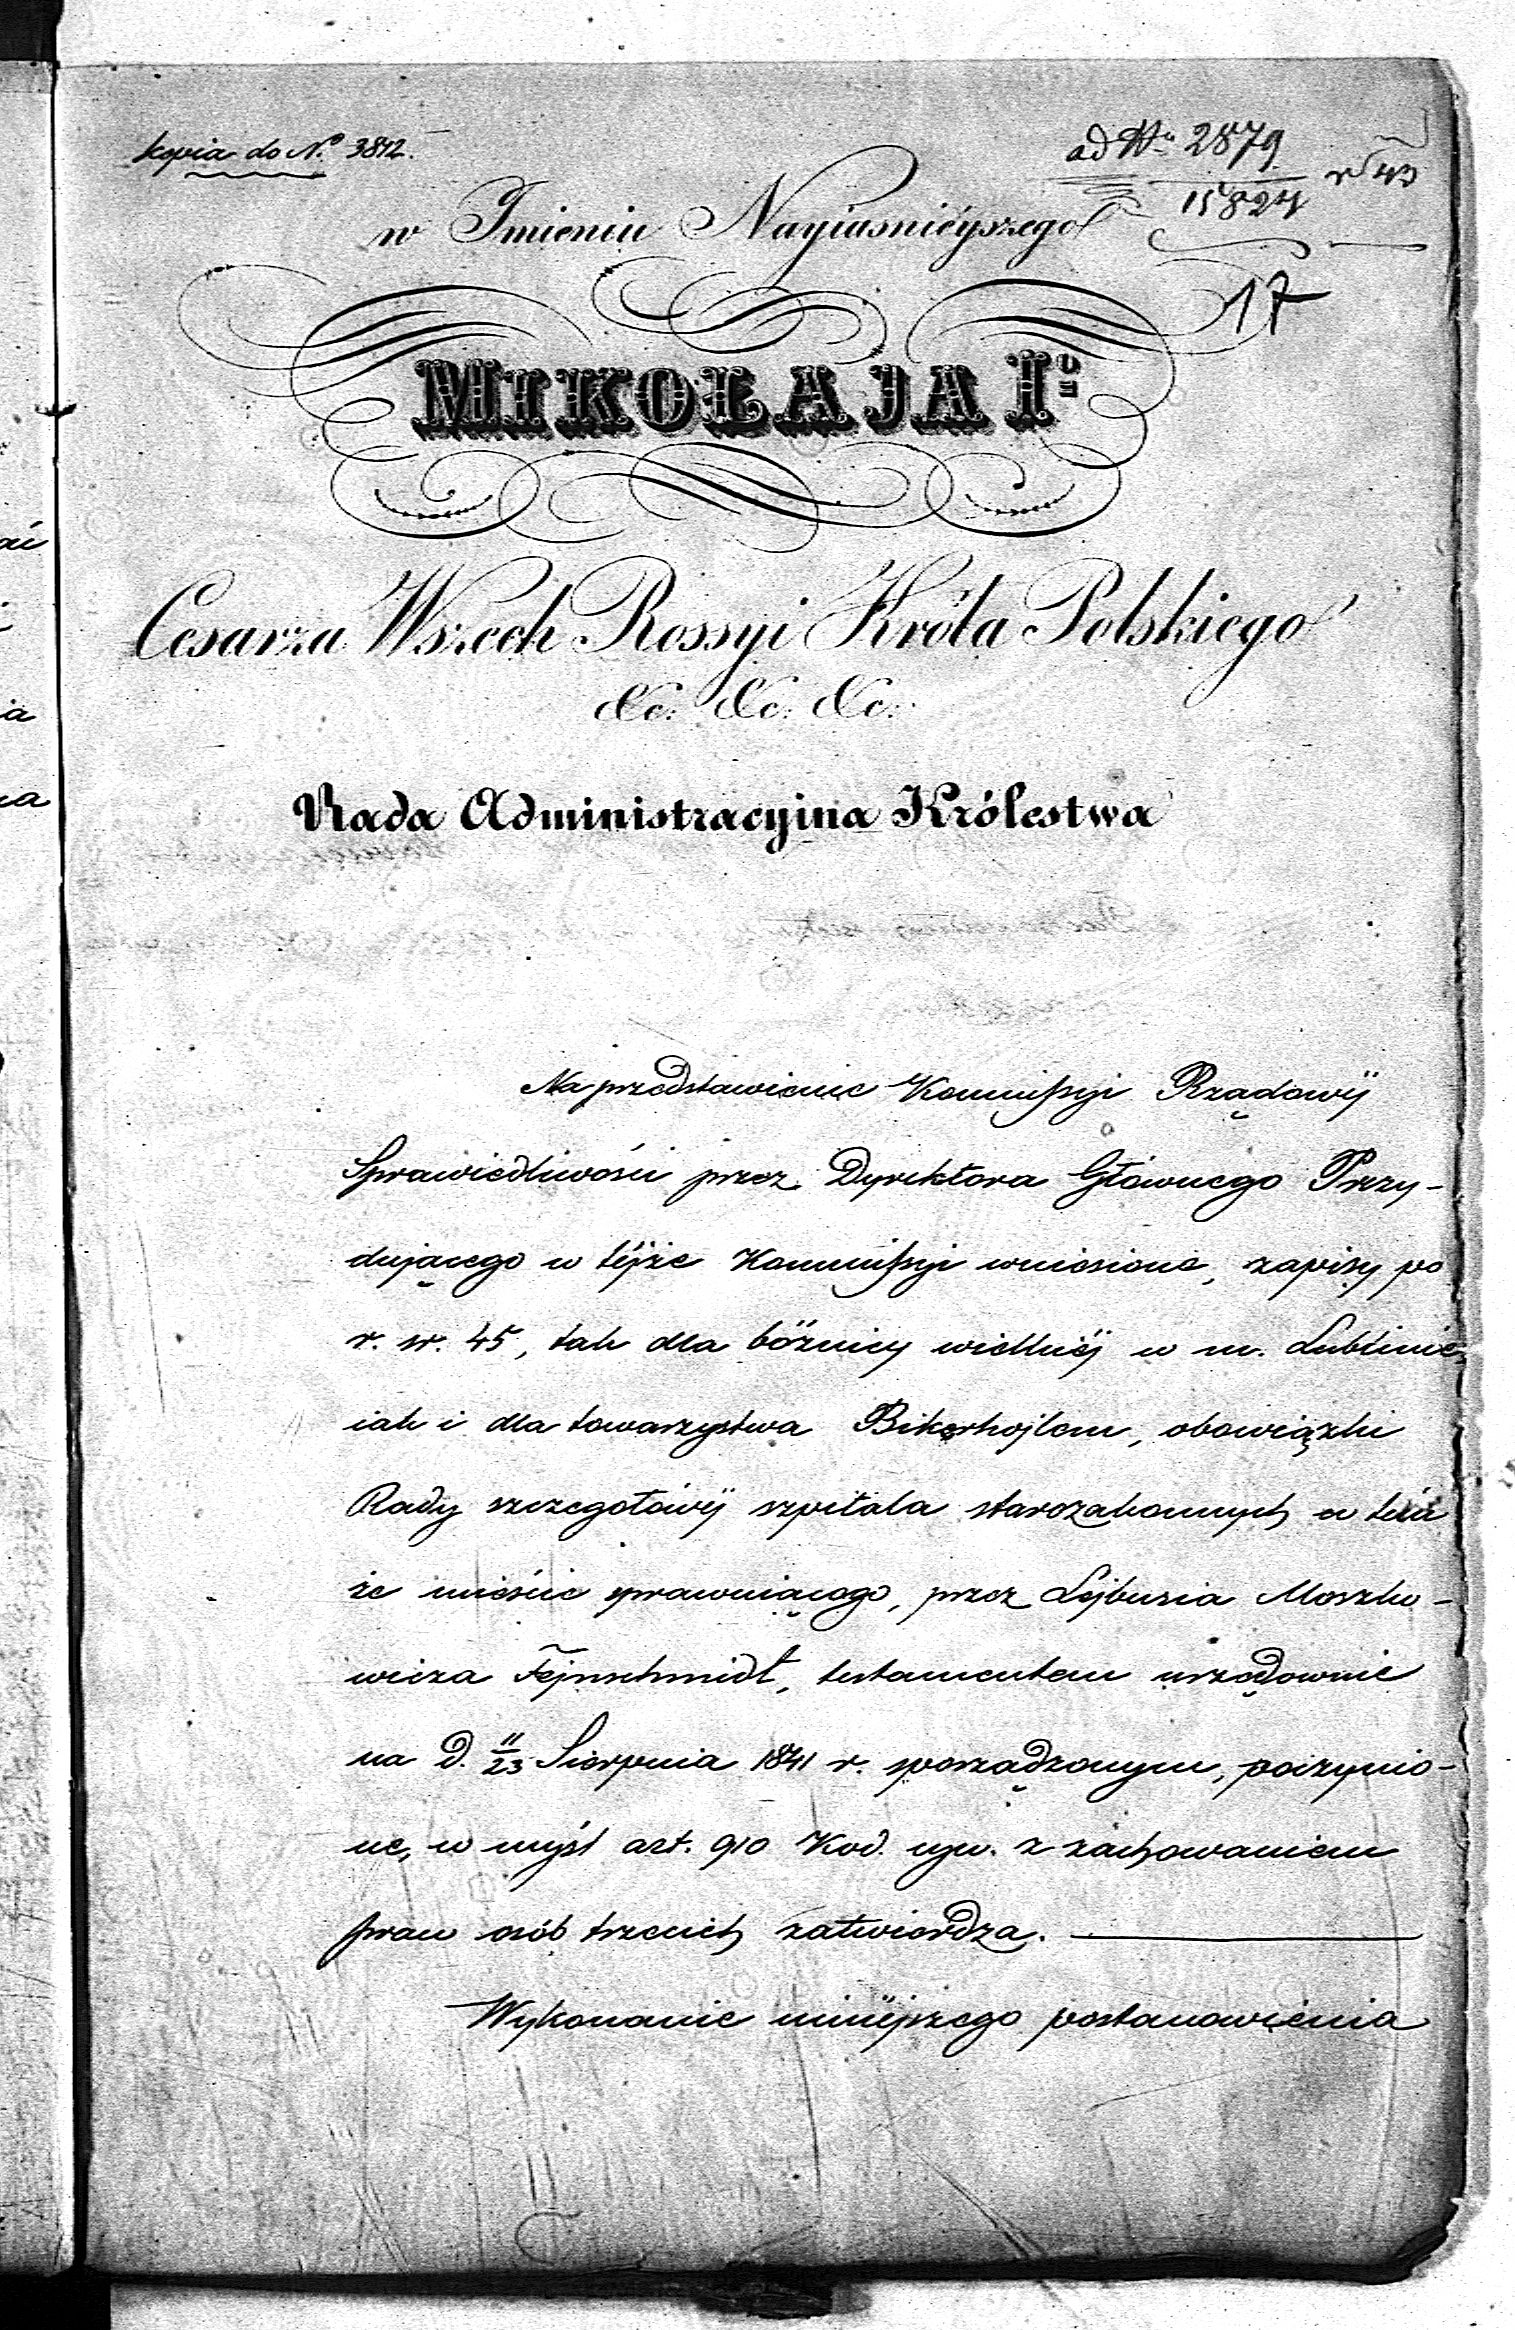 kopia do N.º 3842.
ad Nr. 2879
15824
r 43
w Imieniu Nayiasnieyszego
17
MIKOŁAJA Iº
Cesarza Wszech Rossyi Króla Polskiego
&c. &c. &c.
Rada Administracyina Królestwa
Na przedstawienie Kommissyi Rządowéj
Sprawiedliwości przez Dyrektora Głównego Prezy-
dującego w téjże Kommissyi wniesione, zapisy po
r. sr. 45, tak dla bóżnicy wielkiéj w m. Lublinie,
iak i dla towarzystwa Bikerhojlem, obowiązki
Rady szczegołowéj szpitala starozakonnych w tém
że mieście sprawuiącego, przez Lejbusia Moszko-
wicza Fejnschmidt, testamentem urzędownie
na d. 11/23 Sierpnia 1841 r. sporządzonym, poczynio-
ne, w myśl art. 910 Kod. cyw. z zachowaniem
praw osób trzecich zatwierdza.
Wykonanie niniéjszego postanowienia